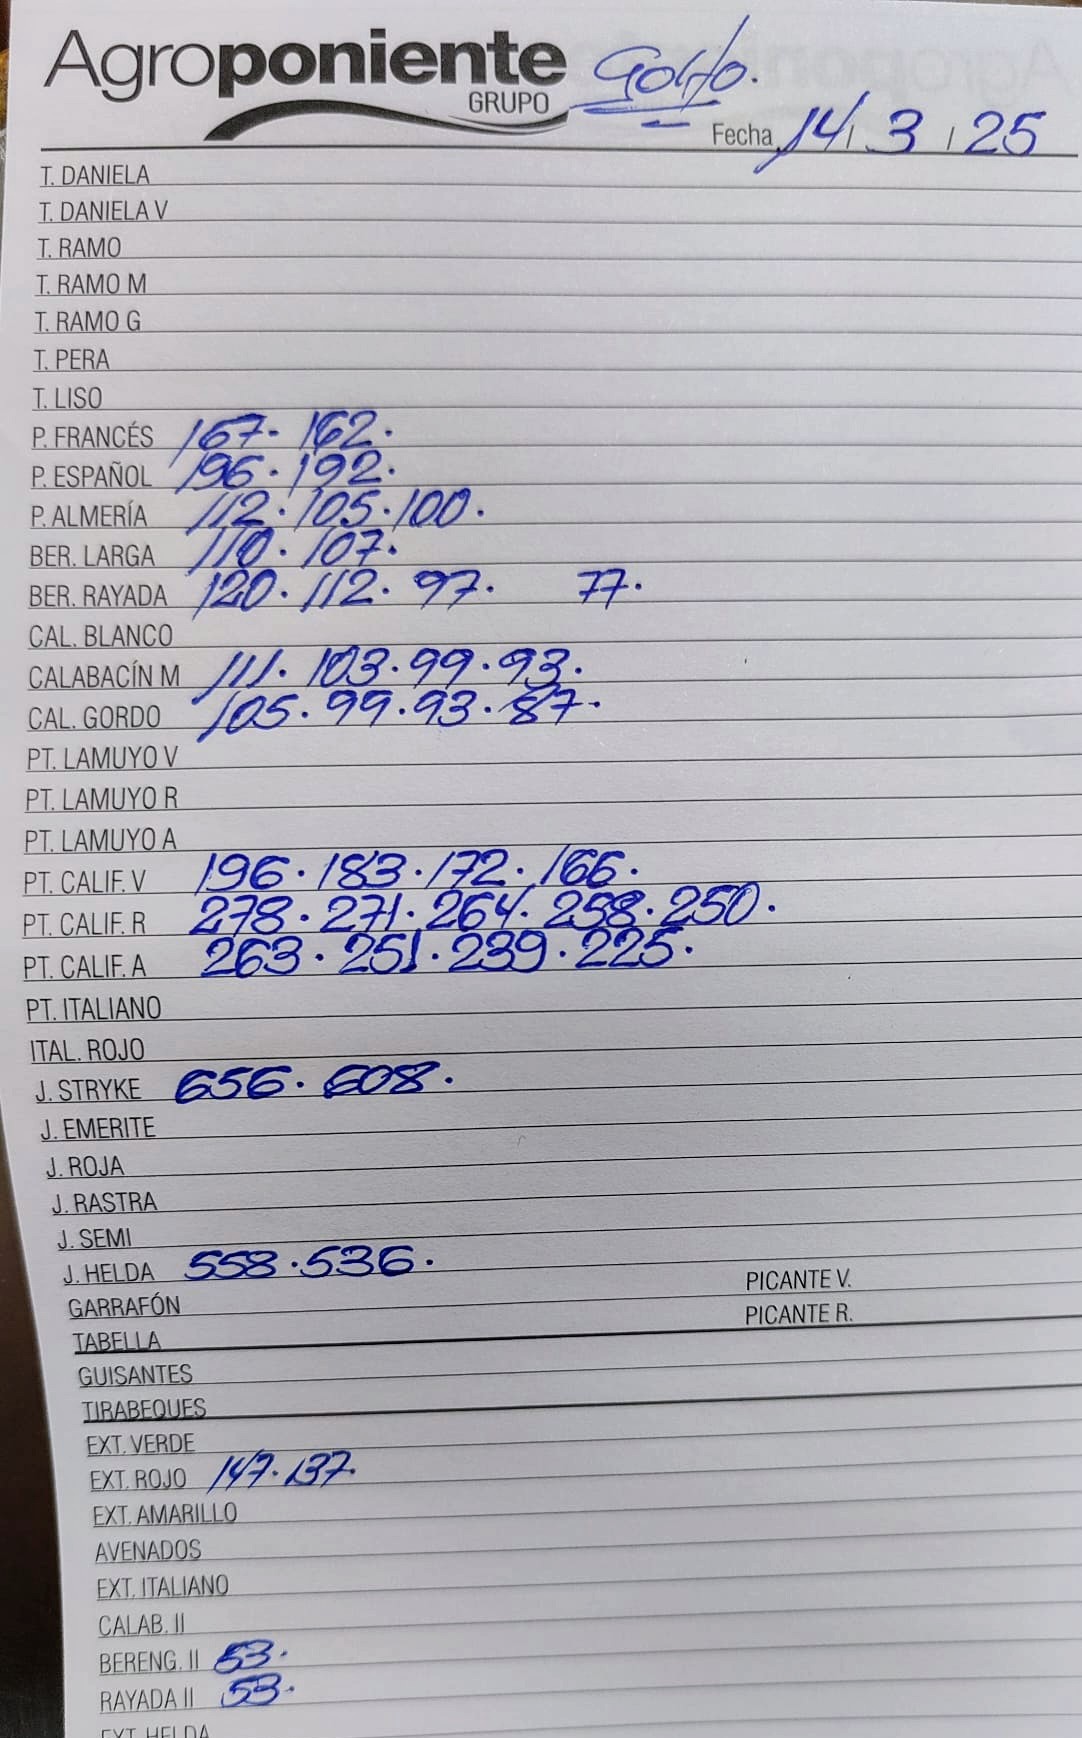 Agroponiente
GRUPO
Golfo.
Fecha 14 / 3 / 25
T. DANIELA
T. DANIELA V
T. RAMO
T. RAMO M
T. RAMO G
T. PERA
T. LISO
P. FRANCÉS 167. 162.
P. ESPAÑOL 196. 192.
P. ALMERÍA 112. 105. 100.
BER. LARGA 110. 107.
BER. RAYADA 120. 112. 97. 77.
CAL. BLANCO
CALABACÍN M 111. 103. 99. 93.
CAL. GORDO 105. 99. 93. 87.
PT. LAMUYO V
PT. LAMUYO R
PT. LAMUYO A
PT. CALIF. V 196. 183. 172. 166.
PT. CALIF. R 278. 271. 264. 258. 250.
PT. CALIF. A 263. 251. 239. 225.
PT. ITALIANO
ITAL. ROJO
J. STRYKE 656. 608.
J. EMERITE
J. ROJA
J. RASTRA
J. SEMI
J. HELDA 558. 536.
PICANTE V.
GARRAFÓN
PICANTE R.
TABELLA
GUISANTES
TIRABEQUES
EXT. VERDE
EXT. ROJO 147. 137.
EXT. AMARILLO
AVENADOS
EXT. ITALIANO
CALAB. II
BERENG. II 53.
RAYADA II 53.
EXT. HELDA